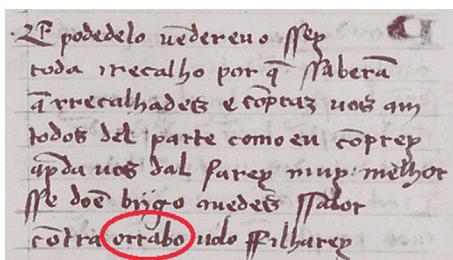 E podedelo uender eu o ssey
toda rrecalho por q̃ ssaberã
q̃ rrecalhades e cõpraz uos am
todos del parte como eu cõprey
ap̃da uos dal farey muy melhor
sse doẽ byygo uuedes ssabor
contra orrabo uolo ffilharey